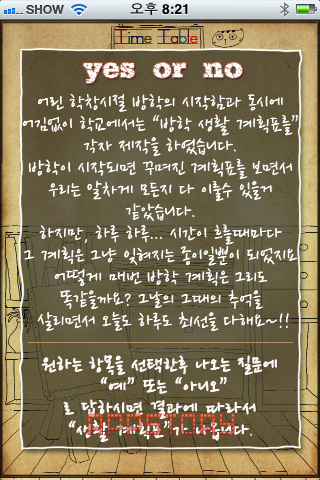 SHOW 오후 8:21
Time Table
yes or no
어린 학창시절 방학의 시작함과 동시에
어김없이 학교에서는 “방학 생활 계획표를”
각자 제작을 하였습니다.
방학이 시작되면 꾸며진 계획표를 보면서
우리는 알차게 모든지 다 이룰수 있을거
같았습니다.
하지만, 하루 하루... 시간이 흐를때마다
그 계획은 그냥 잊혀지는 종이일뿐이 되었지요
어떻게 매번 방학 계획은 그리도
똑같을까요? 그날의 그때의 추억을
살리면서 오늘도 하루도 최선을 다해요~!!
원하는 항목을 선택한후 나오는 질문에
“예” 또는 “아니오”
로 답하시면 결과에 따라서
“생활계획표”가 나옵니다.
APPSTORY